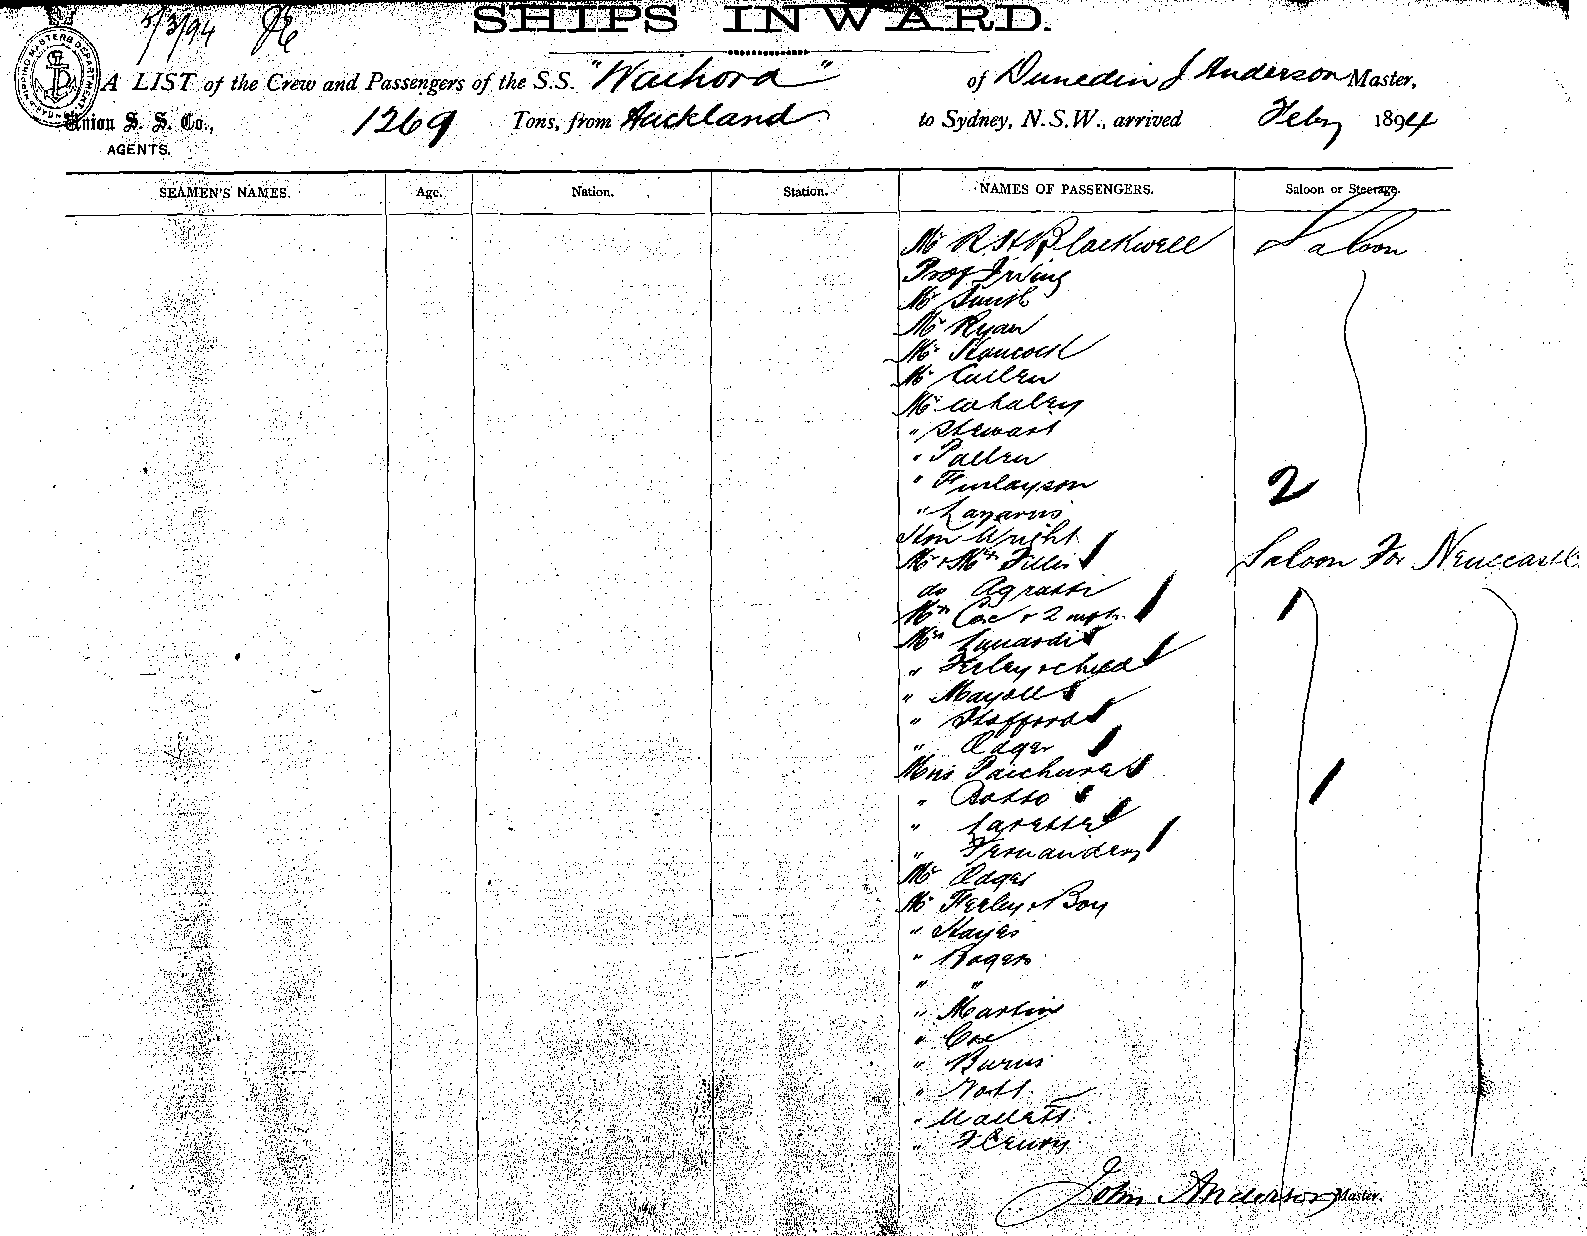 5/3/94
SHIPS INWARD.
SHIPPING MASTERS DEPARTMENT
A LIST of the Crew and Passengers of the S.S. "Waihora" of Dunedin J Anderson Master,
Union S. S. Co., 1269 Tons, from Auckland to Sydney, N.S.W., arrived Feby 1894
AGENTS.
SEAMEN'S NAMES. Age. Nation. Station. NAMES OF PASSENGERS. Saloon or Steerage.
Mr R H Blackwell Saloon
Prof Irving
Mr Smith
Mr Ryan
Mr Hancock
Mr Cullen
Mr Whaley
" Stewart
" Pullen
" Finlayson 2
" Lazarus
Hon Wright
Mr & Mrs Fillis Saloon For Newcastle
do Agratti
Mrs Cox & 2 1
Mrs Lunardi
" Ferley & child
" Mayoll
" Stafford
" Adger
Mons
" Bosso
"
" Fernandez
Mr Adger
Mr Ferley & Boy
" Hayes
" Rogers
" "
" Martin
" Cox
" Burns
" Nott
" Mallett
"
John Anderson Master.